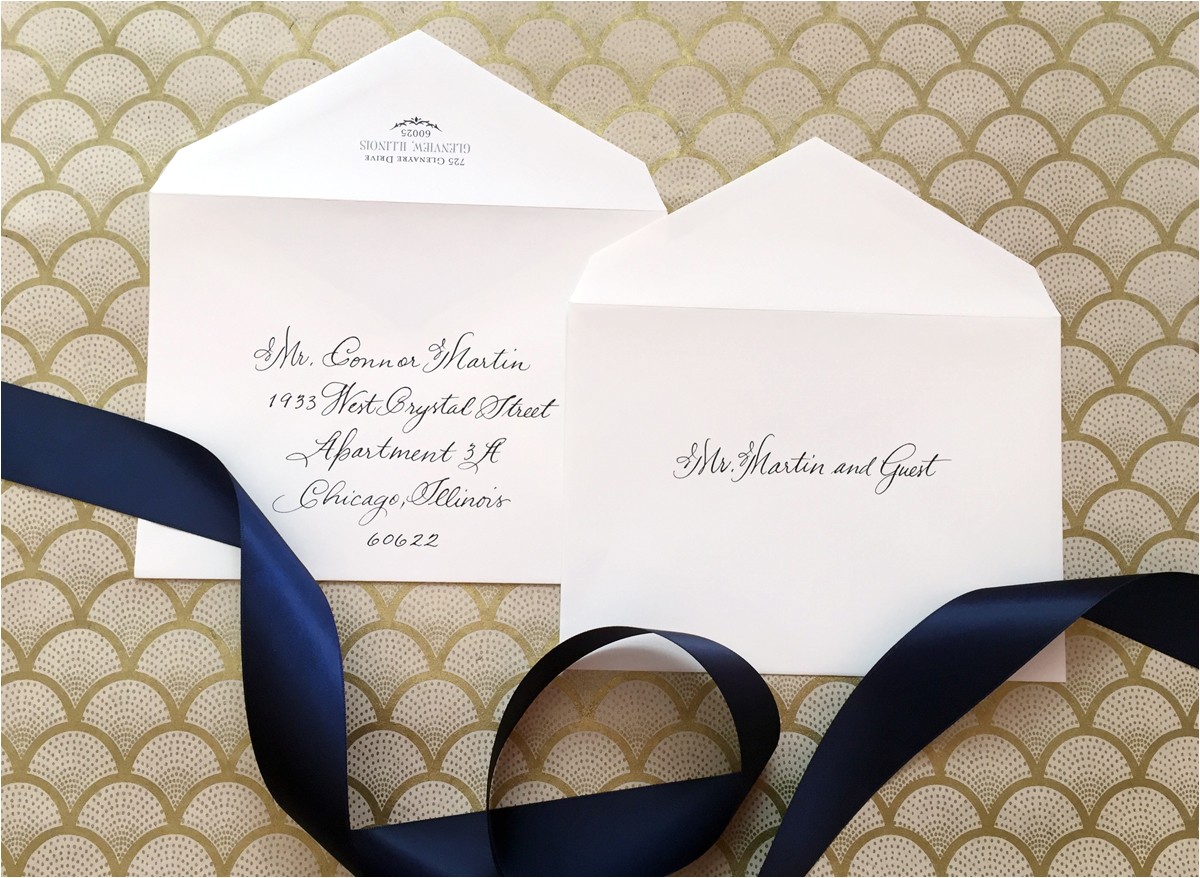 725 Glenayre Drive
Glenview, Illinois
60025
Mr. Connor Martin
1933 West Crystal Street
Apartment 3A
Chicago, Illinois
60622
Mr. Martin and Guest